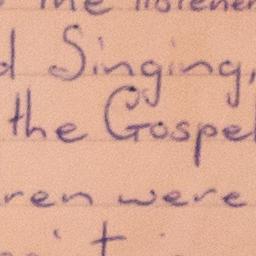 the listener
d Singing,
the Gospel
ren were